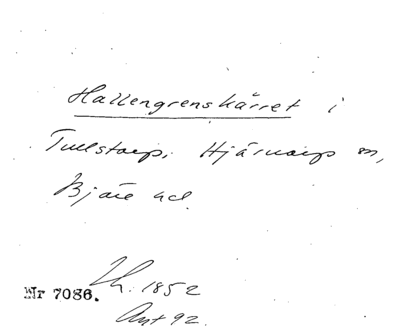 Hallengrenskärret i
Tullstorp, Hjärnarp sn,
Bjäre hd.
Nr 7086. Lh. 1852
Ant 92.